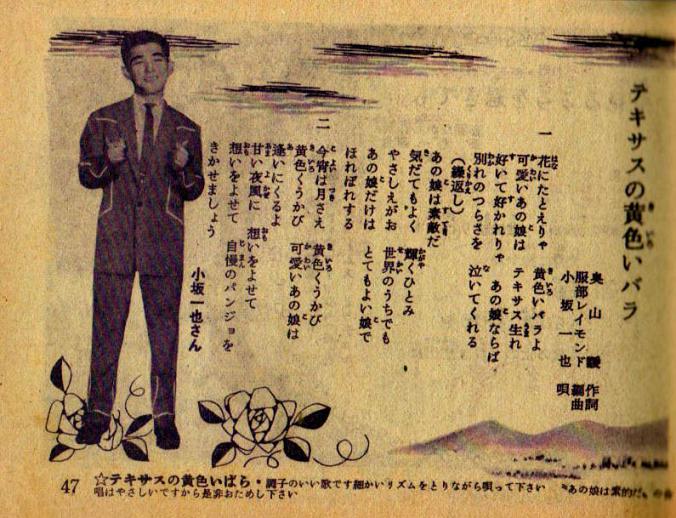 テキサスの黄色いバラ
奥山靉 作詞
服部レイモンド 編曲
小坂一也 唄
一
花にたとえりゃ 黄色いバラよ
可愛いあの娘は テキサス生れ
好いて好かれりゃ あの娘ならば
別れのつらさを 泣いてくれる
(繰返し)
あの娘は素敵だ
気だてもよく 輝くひとみ
やさしえがお 世界のうちでも
あの娘だけは とてもよい娘で
ほれぼれする
二
今宵は月さえ 黄色くうかび
黄色くうかび 可愛いあの娘は
逢いにくるよ
甘い夜風に 想いをよせて
想いをよせて 自慢のバンジョを
きかせましょう
小坂一也さん
47 ☆テキサスの黄色いばら・調子のいい歌です細かいリズムをとりながら唄って下さい "あの娘は素的だ
唱はやさしいですから是非おためし下さい